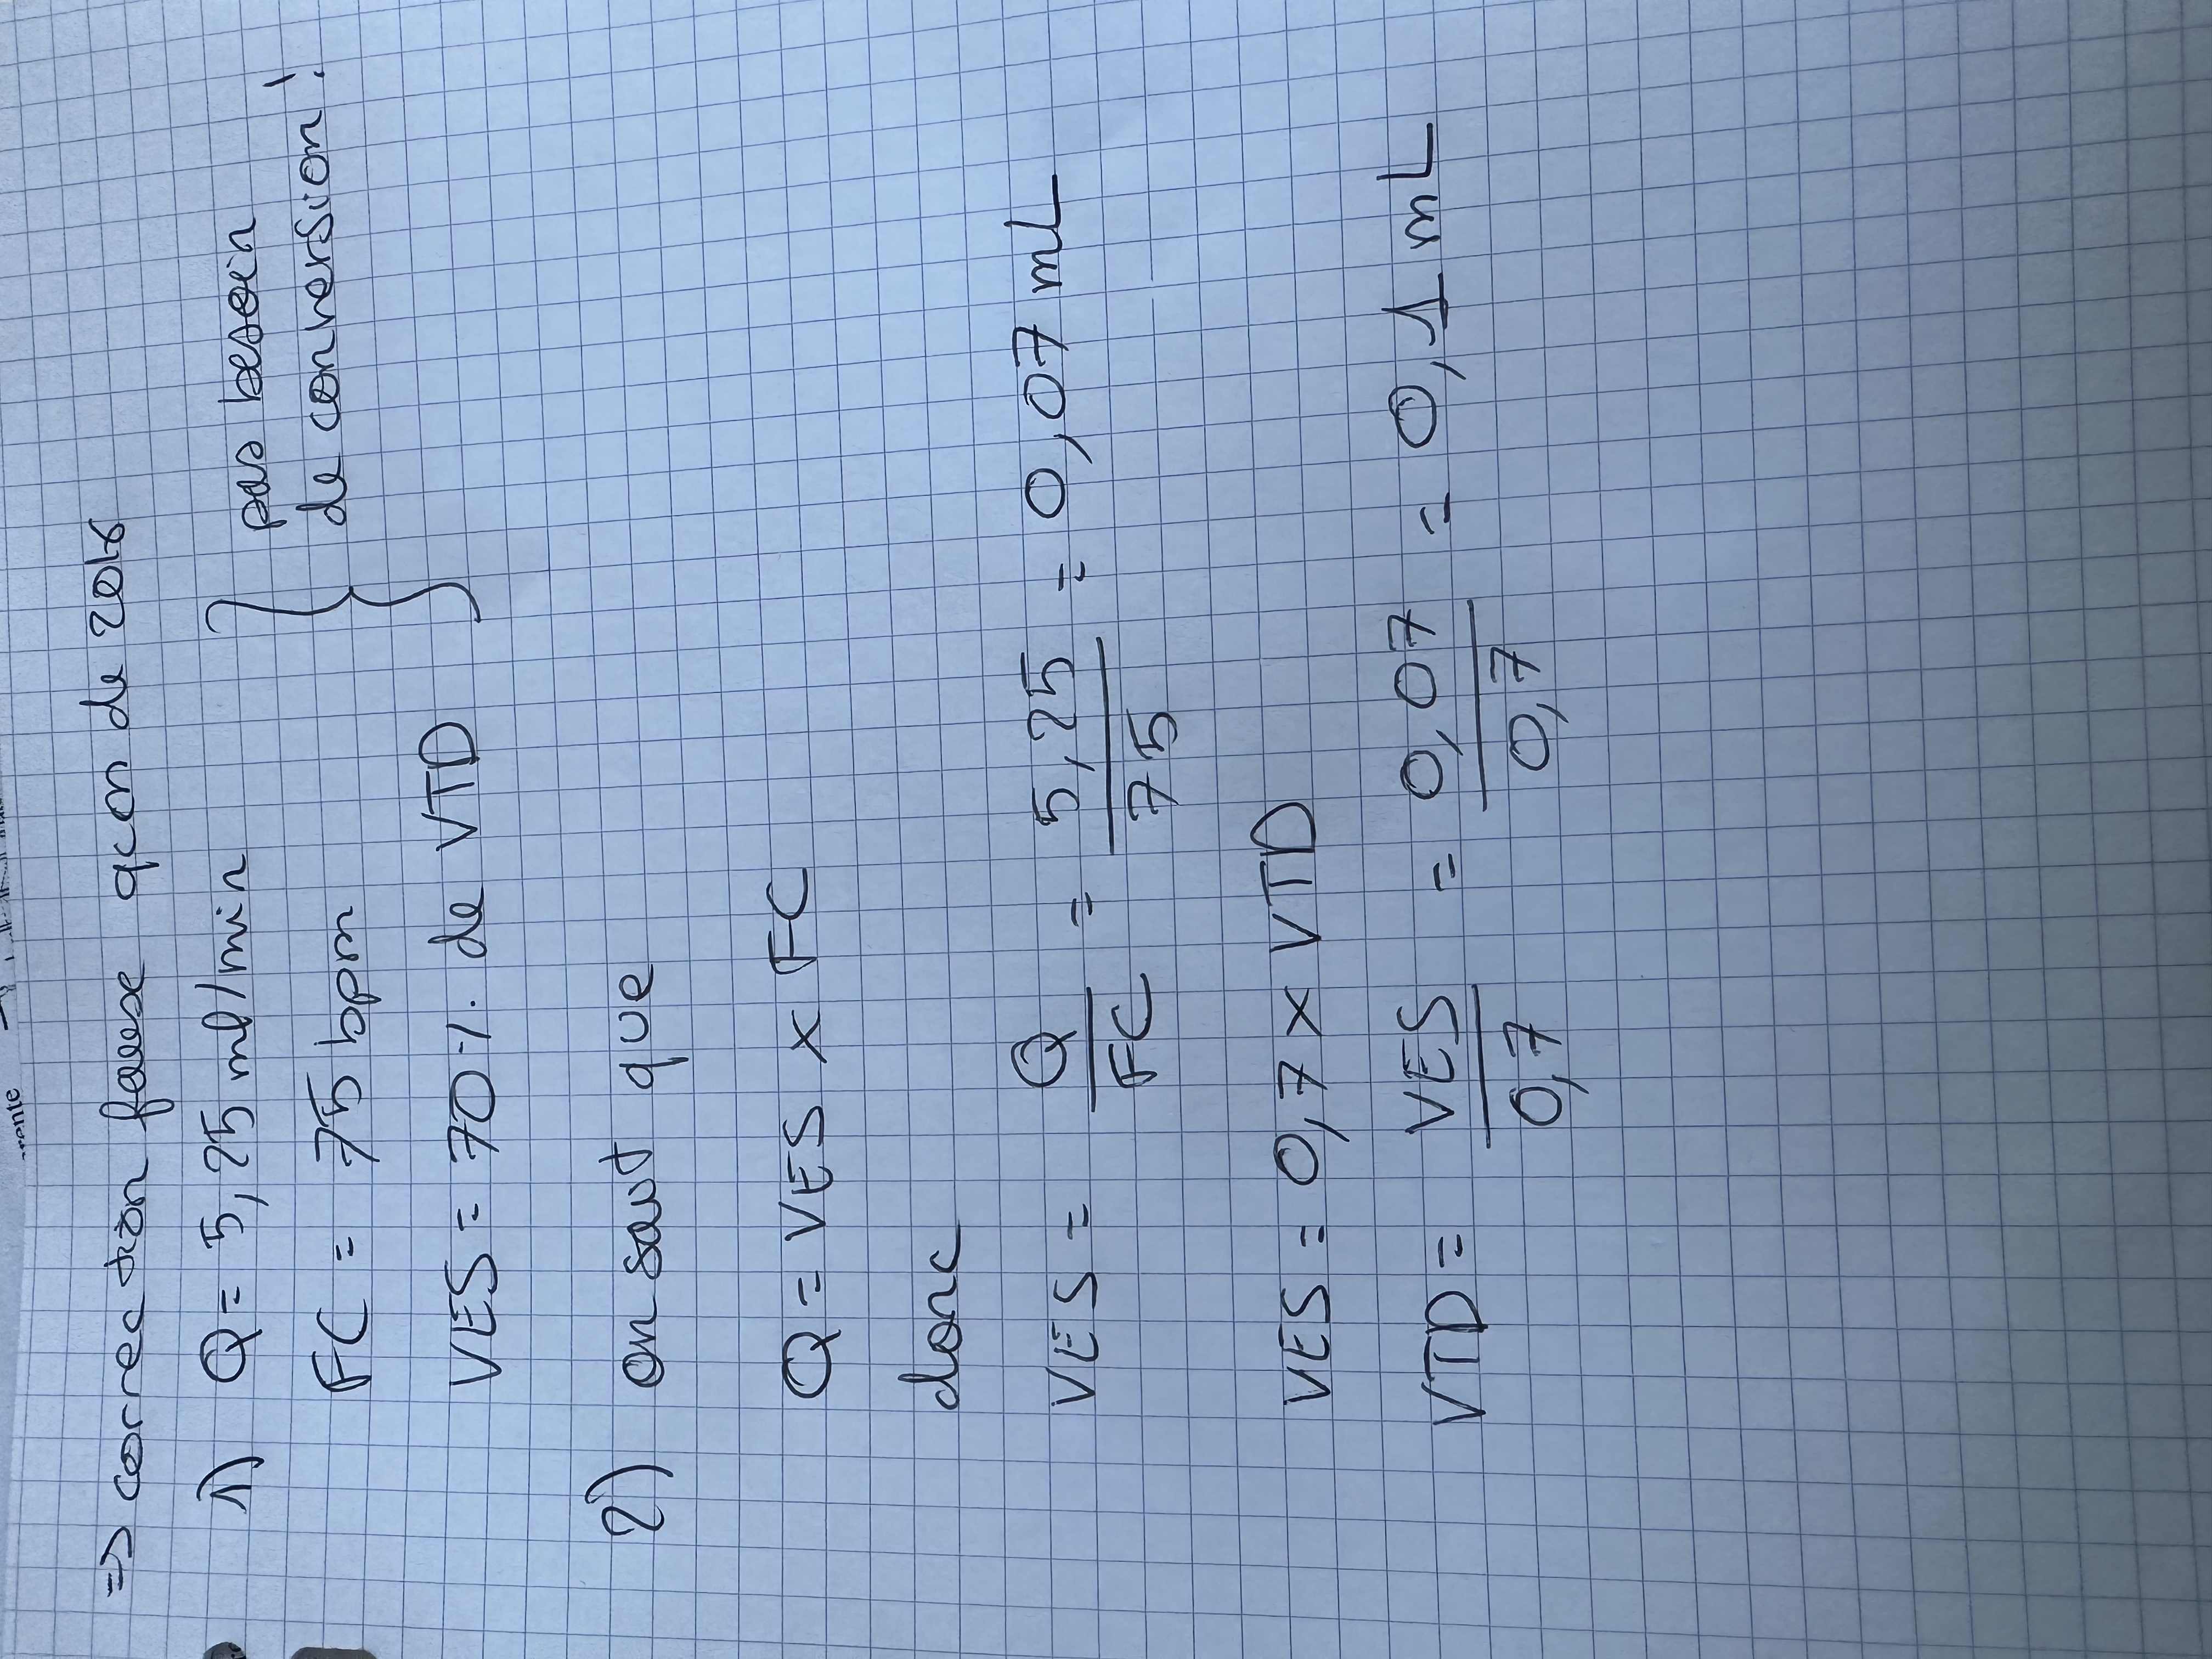 ⇒ correction fausse qcm de 2018
1) Q = 5,25 ml/min } pas besoin
FC = 75 bpm de conversion !
VES = 70 % de VTD
2) on sait que
Q = VES x FC
donc
VES = Q/FC = 5,25/75 = 0,07 mL
VES = 0,7 x VTD
VTD = VES/0,7 = 0,07/0,7 = 0,1 mL